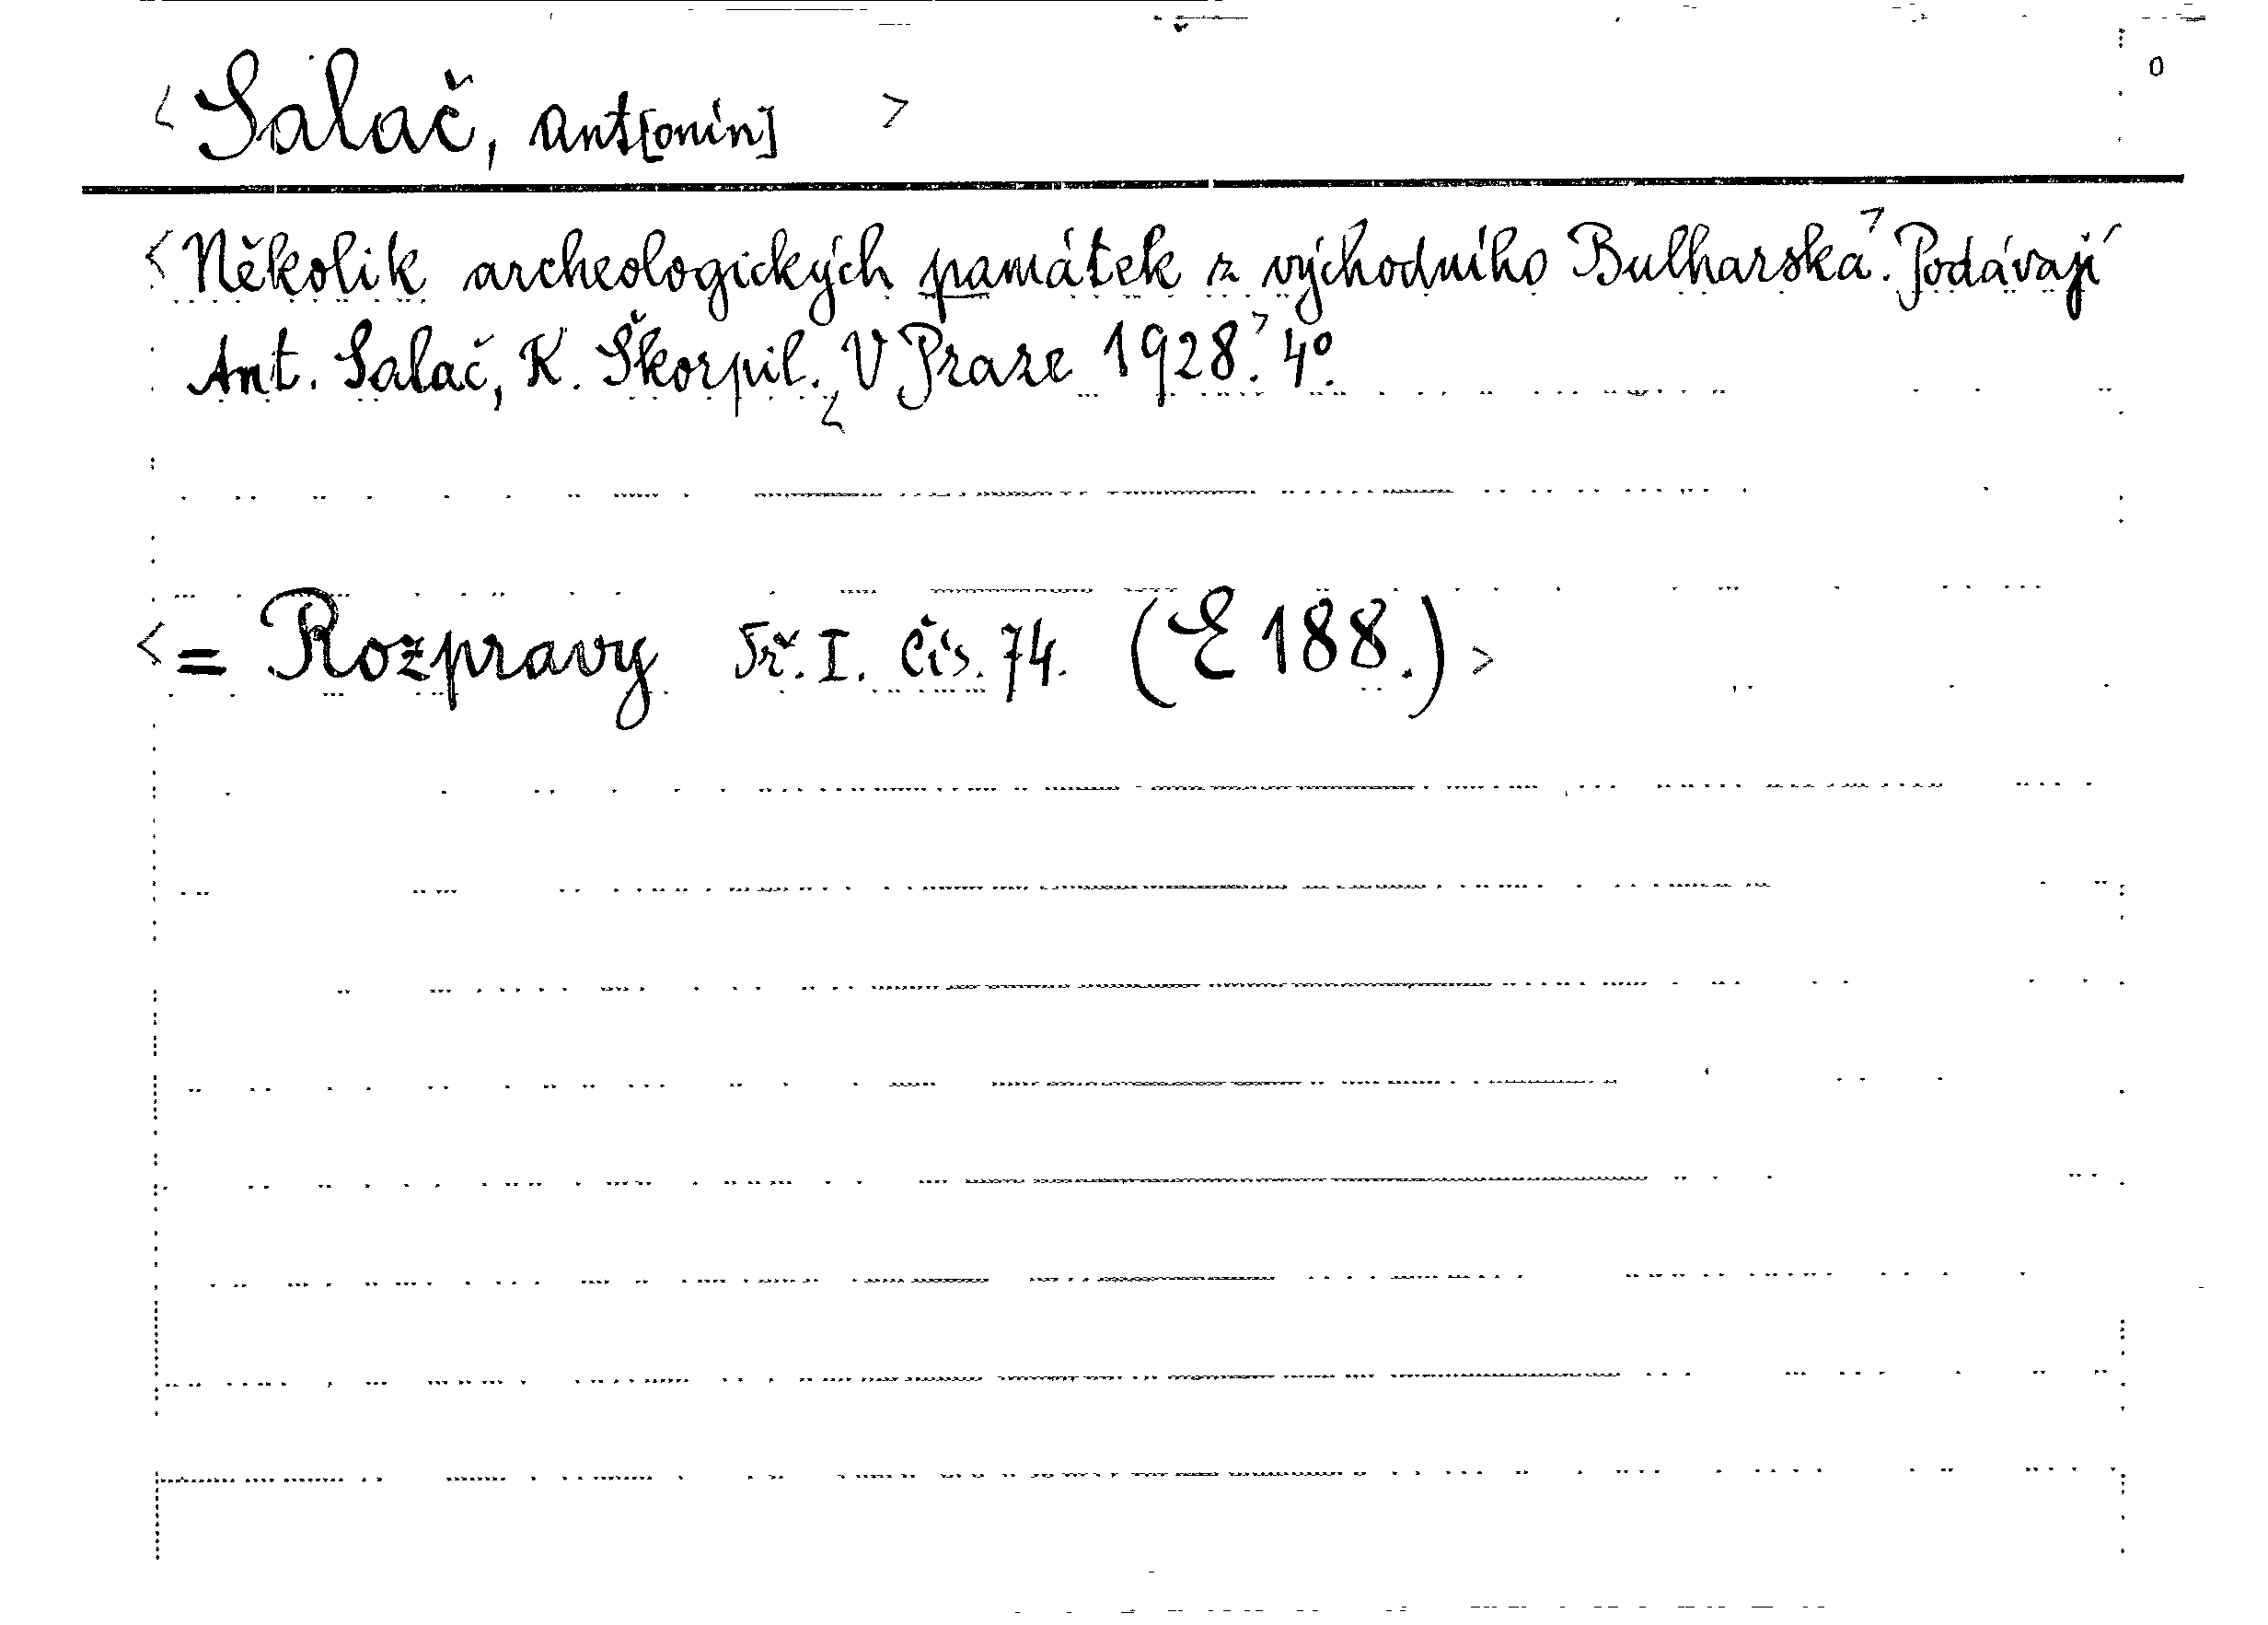 < Salač, Ant[onín] >
< Několik archeologických památek z východního Bulharska >. Podávají
Ant. Salač, K. Škorpil. < V Praze 1928 >. 4°.
< = Rozpravy Tř. I. Čís. 74. (E 188.) >